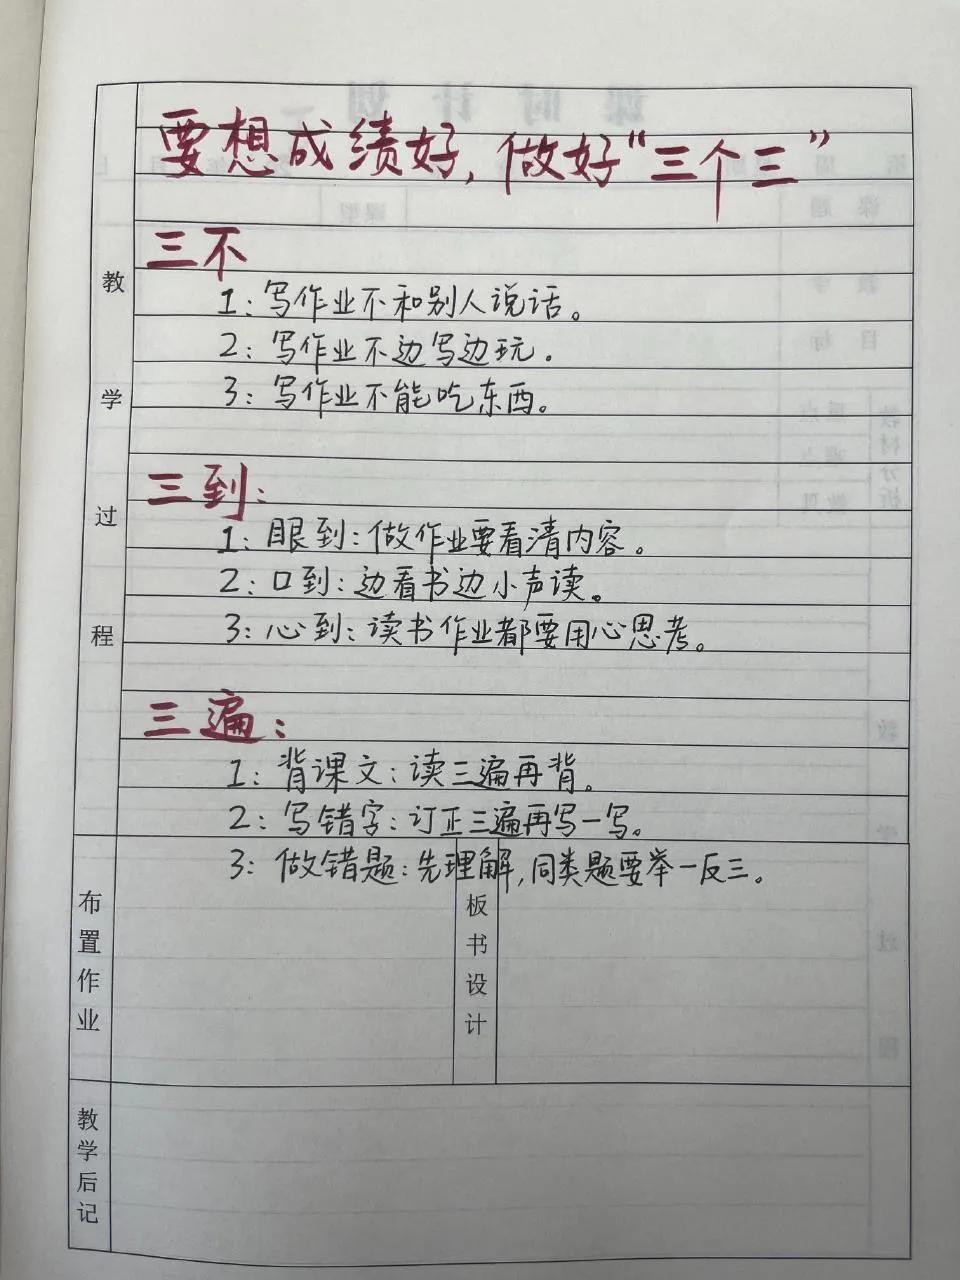 要想成绩好，做好“三个三”
三不
1：写作业不和别人说话。
2：写作业不边写边玩。
3：写作业不能吃东西。
三到：
1：眼到：做作业要看清内容。
2：口到：边看书边小声读。
3：心到：读书作业都要用心思考。
三遍：
1：背课文：读三遍再背。
2：写错字：订正三遍再写一写。
3：做错题：先理解，同类题要举一反三。
教学过程
布置作业
板书设计
教学后记